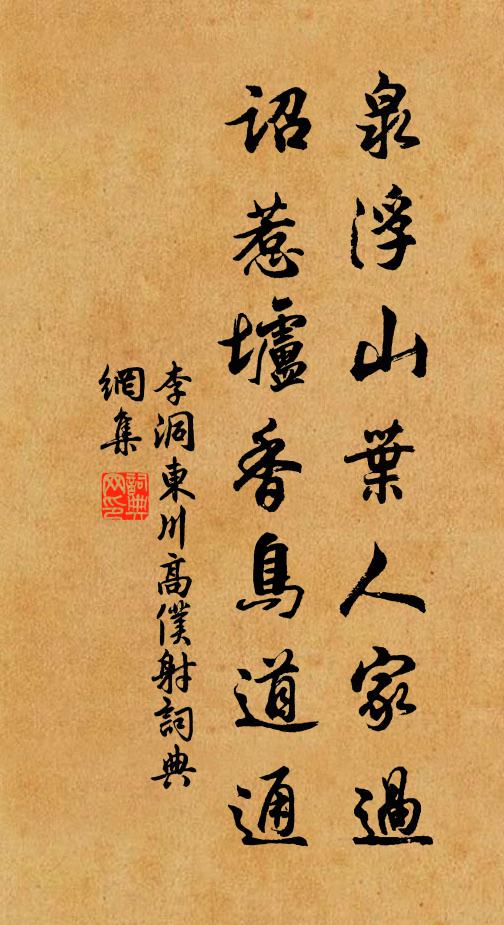 泉浮山葉人家過
詔惹壚香鳥道通
李洞東川高僕射詞典
網集
詞典
网印